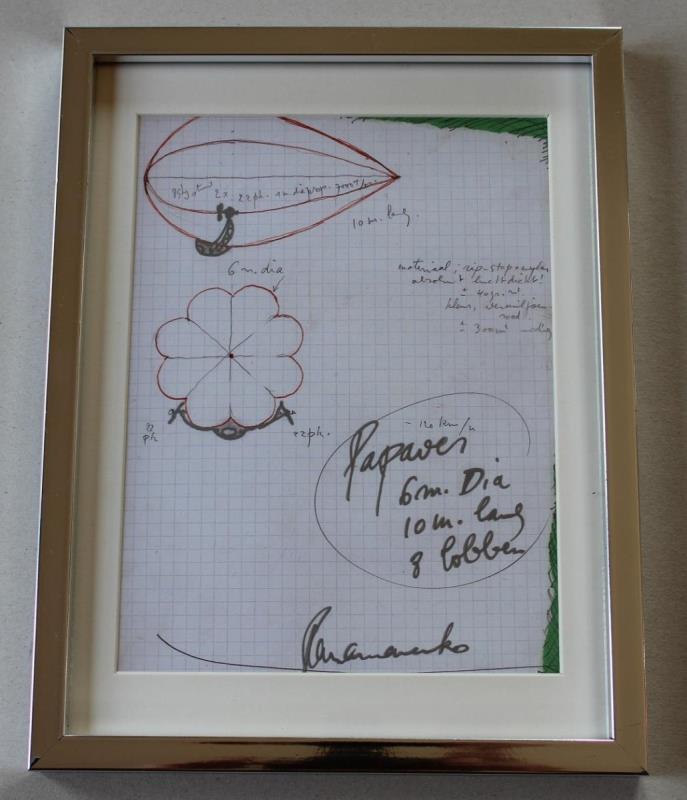 2x 22ph.
10 m. lang.
6 m. dia
materiaal; rip-stop-nylon
absoluut luchtdicht!
± 40 gr. m²
kleur, vermiljoen
rood.
± 300 m² nodig
22
ph
22ph.
- 120 km/u
Papaver
6 m. Dia
10 m. lang
8 lobben
Panamarenko